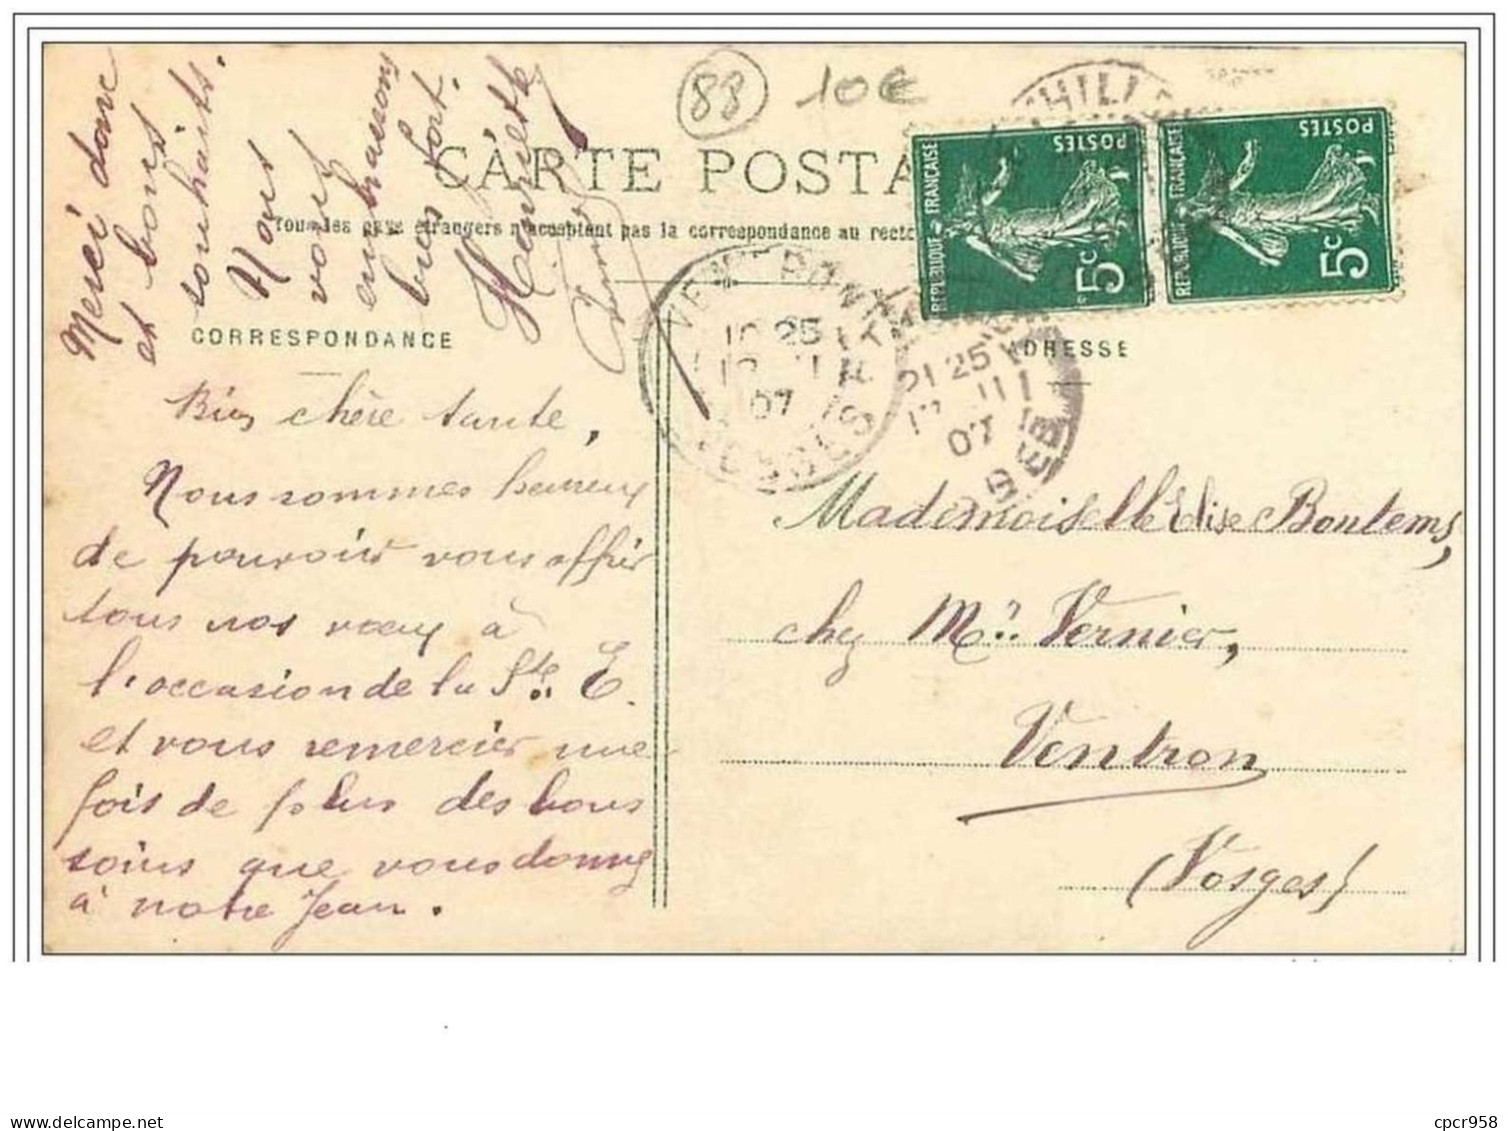 88
10€
CARTE POSTA
Tous les pays étrangers n'acceptent pas la correspondance au recto
REPUBLIQUE FRANÇAISE
POSTES
5c
REPUBLIQUE FRANÇAISE
POSTES
5c
CORRESPONDANCE
ADRESSE
Bien chère tante,
Nous sommes heureux
de pouvoir vous offrir
tous nos vœux à
l'occasion de la Ste E.
et vous remercier une
fois de plus des bons
soins que vous donnez
à notre Jean.
Merci donc
et bons
souhaits.
Nous
vous
embrassons
bien fort.
Henriette
Mademoiselle Elise Bontems,
chez Mr. Vernier,
Ventron
(Vosges)
10 25
11
07
VOSGES
21 25
11
07
cpcr958